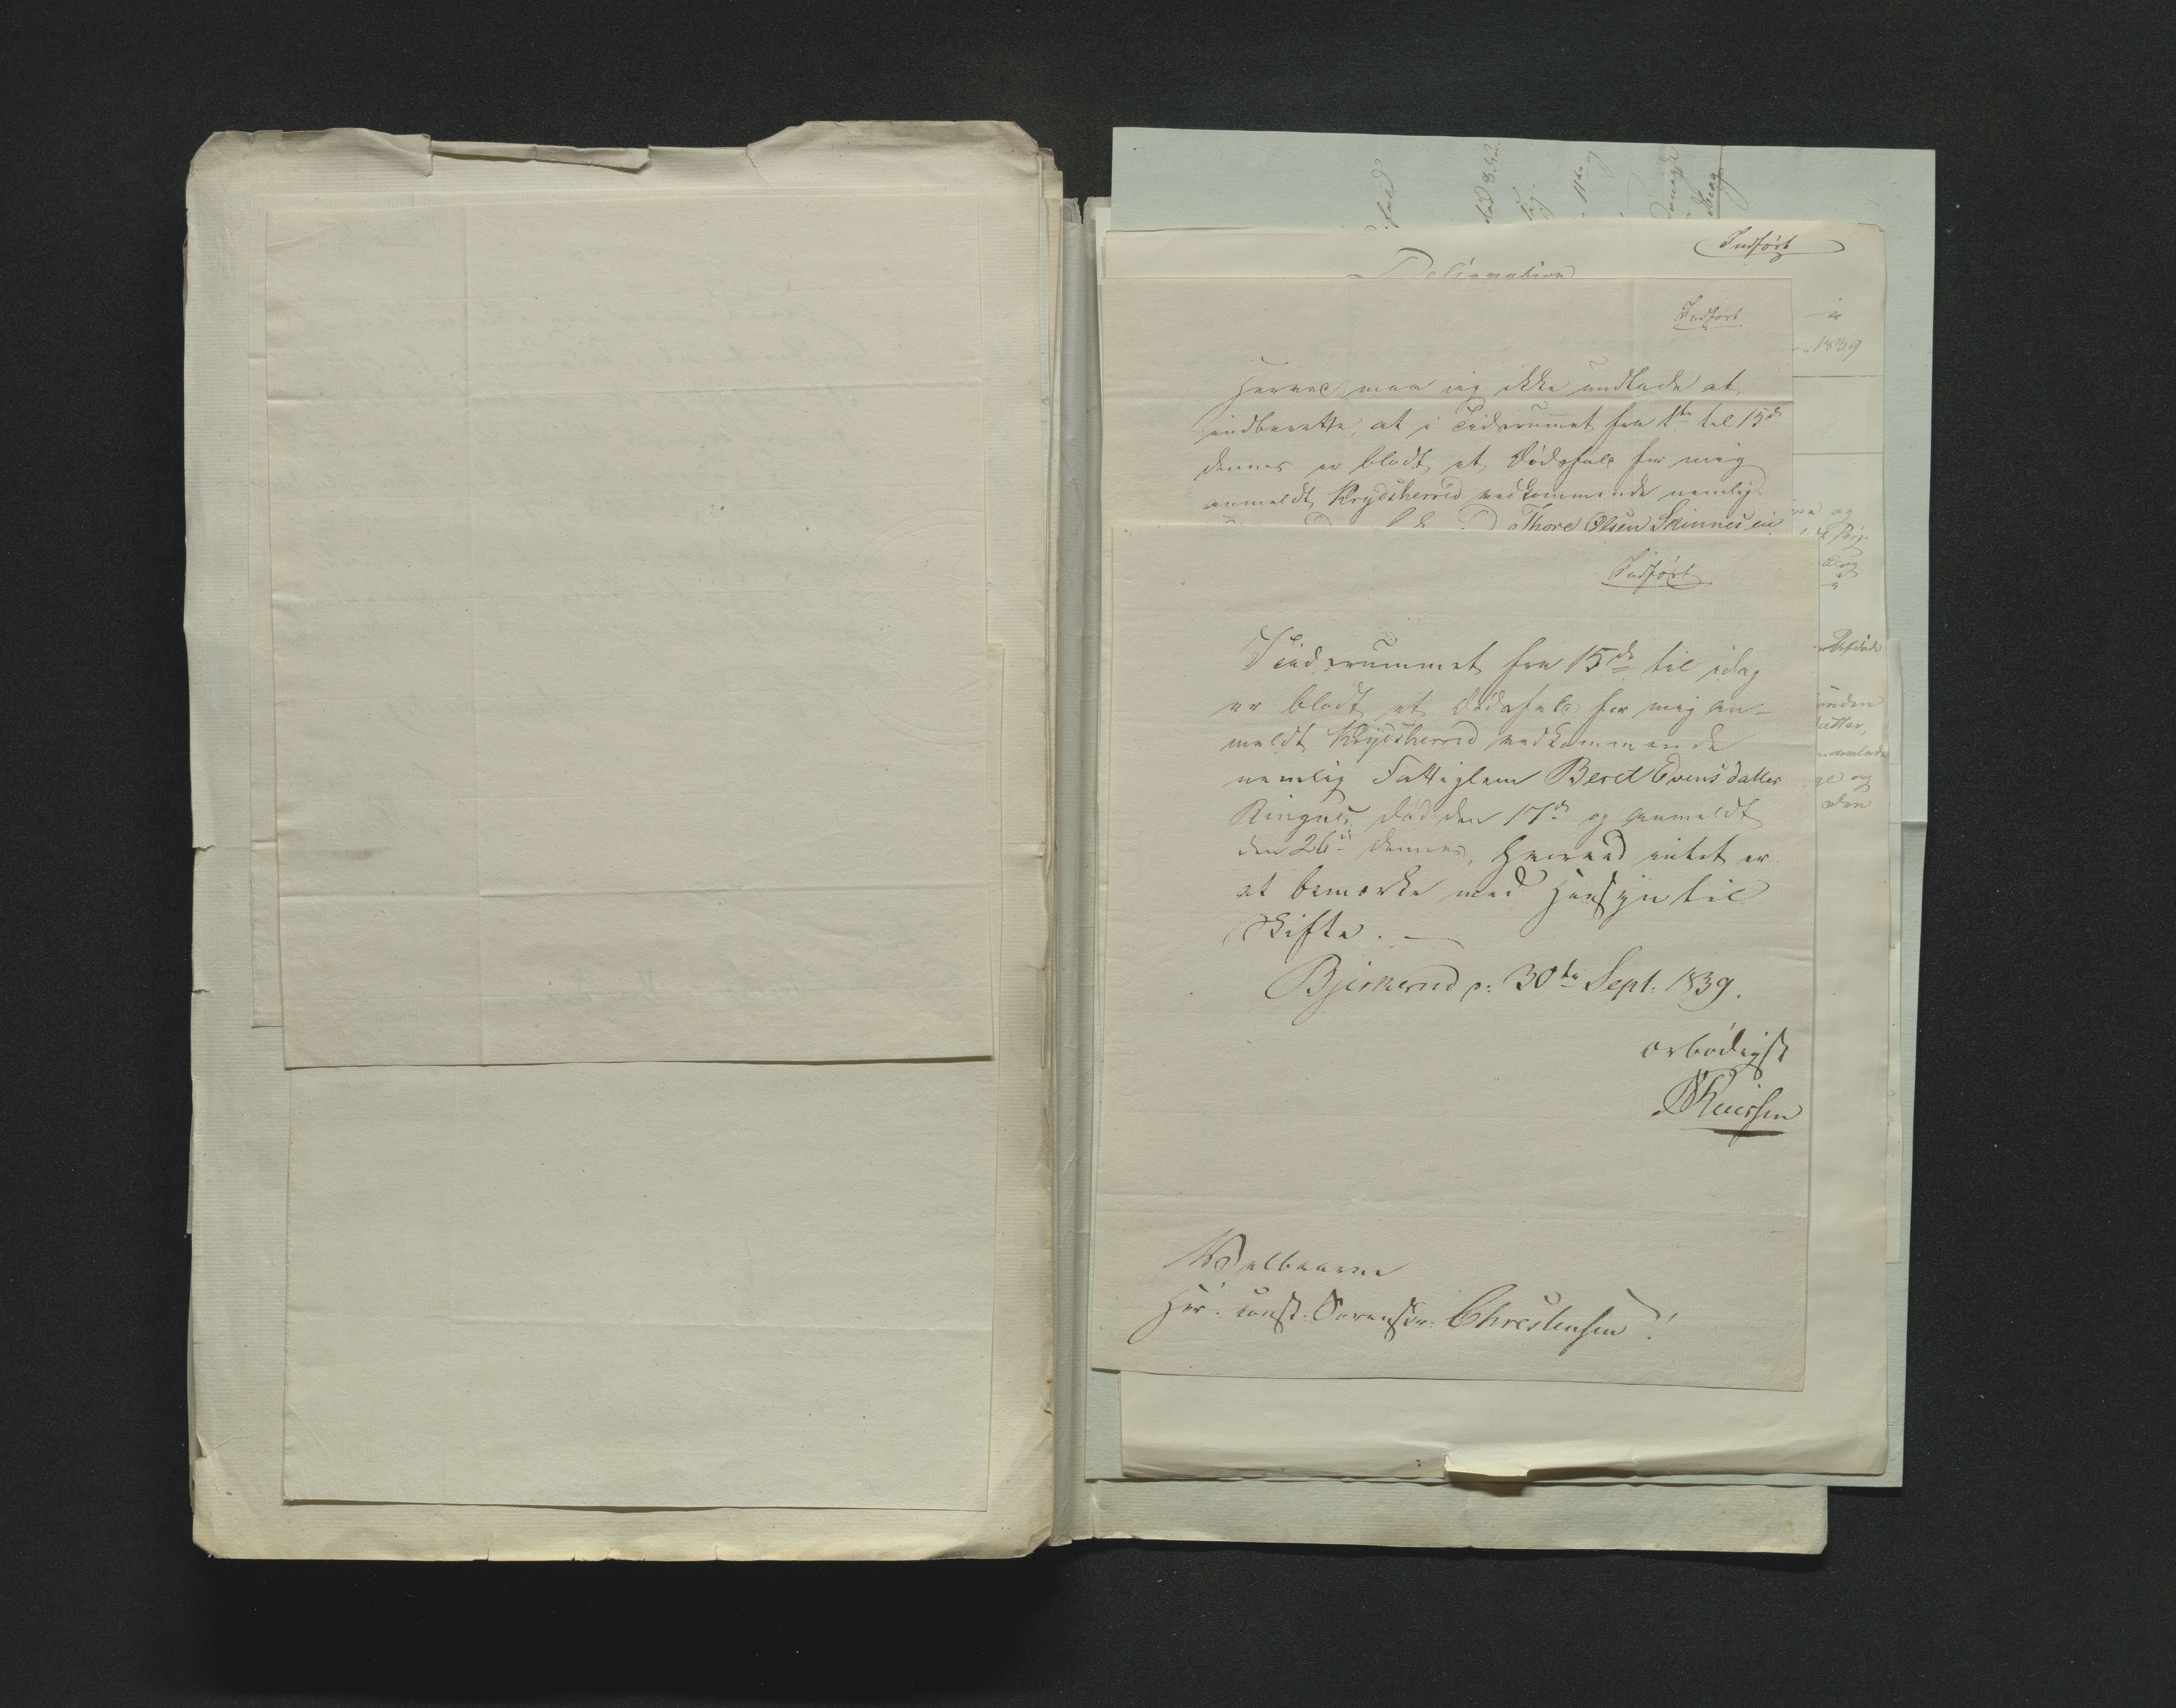 Indført
Designation
1839
Indført
Herved maa jeg ikke undlade at
indberette, at i Tidsrummet fra 1ste til 15de
dennes er blodt et Dødsfald for mig
anmeldt, Krydsherred vedkommende nemlig
Thore Olsen Skinnes
Indført
I Tidsrummet fra 15de til idag
er blodt et Dødsfald for mig an-
meldt Krydsherred vedkommende
nemlig Fattiglem Beret Evensdatter
Ringnes, død den 17de og anmeldt
den 26de dennes, hvorved intet er
at bemærke med Hensyn til
Skifte. —
Bjerkerud d: 30te Sept: 1839.
ærbødigst
Velbaarne
Hr. const. Sorenskr. Christensen!